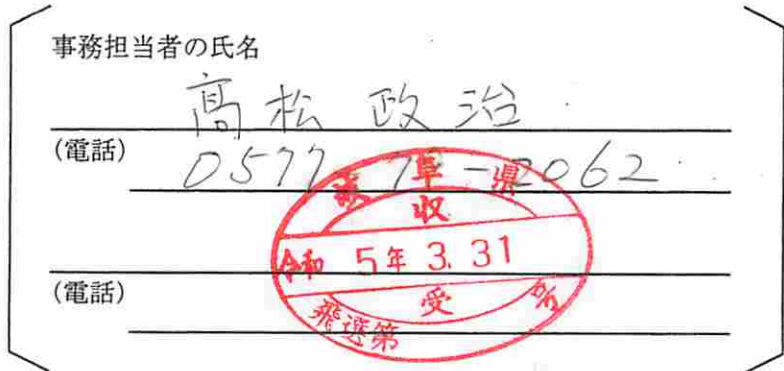 事務担当者の氏名
髙松 政治
(電話)
0577 72-2062
岐阜県
収
令和 5年 3. 31
受
飛選第 号
(電話)